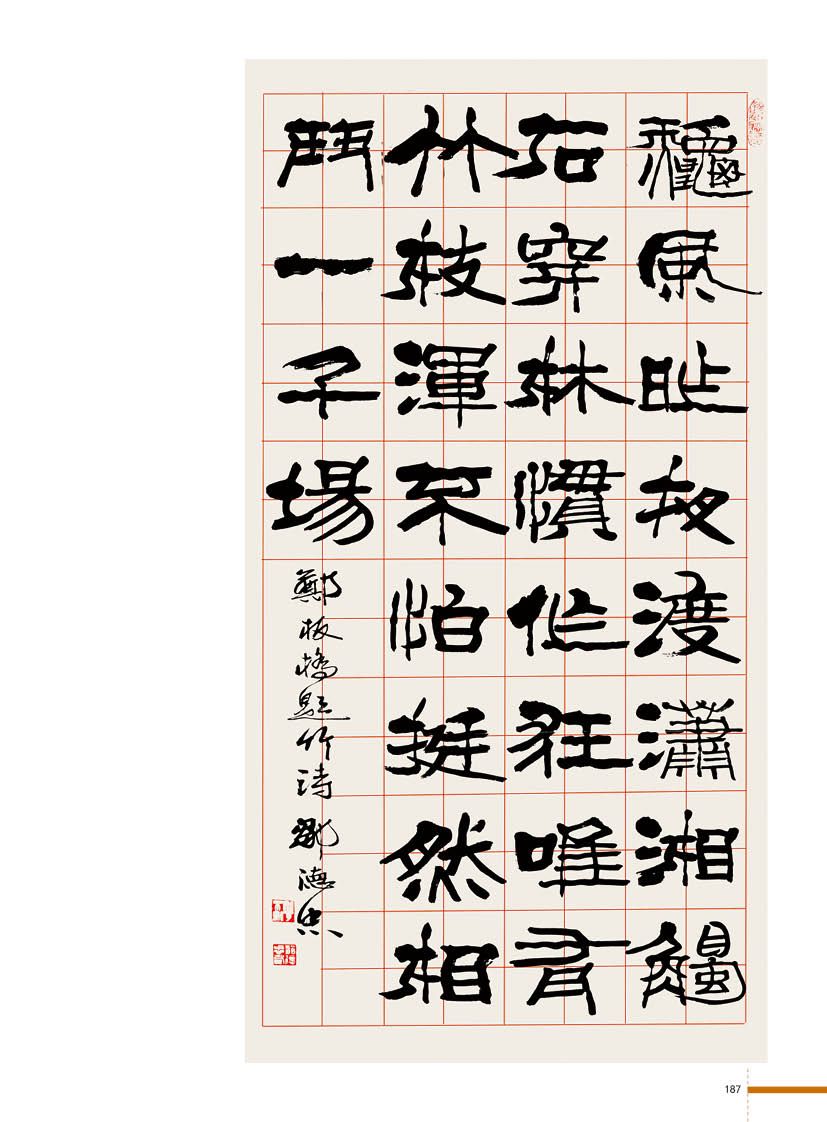 龝風昨夜渡瀟湘觸
石穿林慣作狂唯有
竹枝渾不怕挺然相
鬥一千場
鄭板橋題竹詩 鄧德忠
187